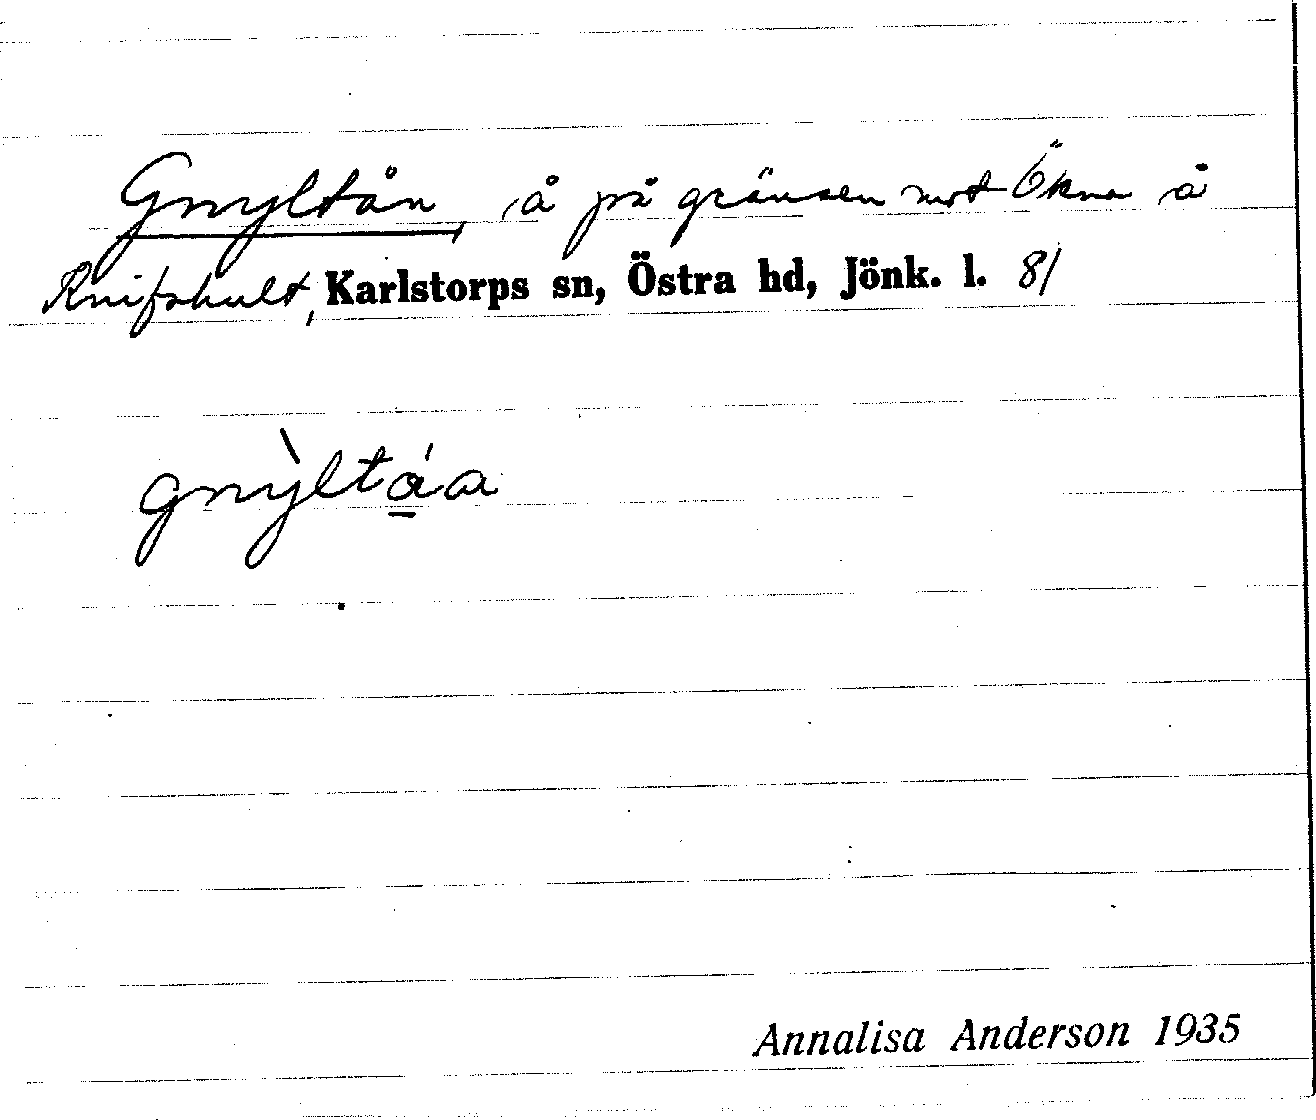 Gnyltån, å på gränsen mot Ökna å
Knifshult, Karlstorps sn, Östra hd, Jönk. l. 81
gnỳltáa
Annalisa Anderson 1935